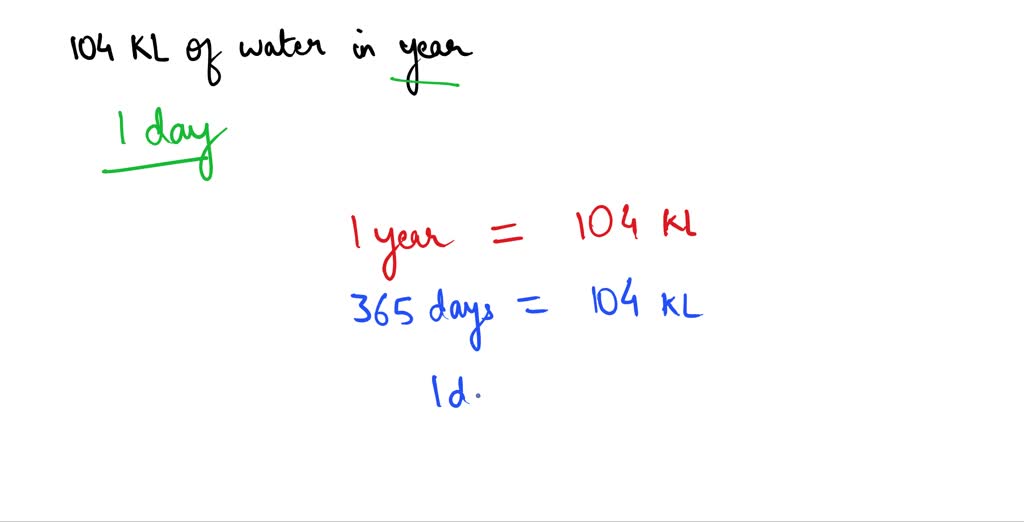 104 KL of water in year
1 day
1 year = 104 KL
365 days = 104 KL
1d.